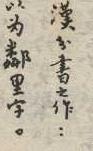 漢分書之作：
以为鄰里字。